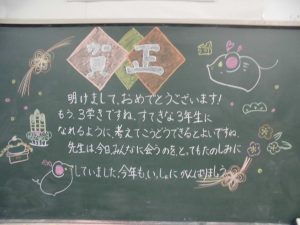 賀正
明けまして、おめでとうございます!
もう3学きですね。すてきな3年生に
なれるように考えてこうどうできるとよいですね。
先生は、今日、みんなに会うのを、とてもたのしみに
していました。今年もいっしょにがんばりましょう